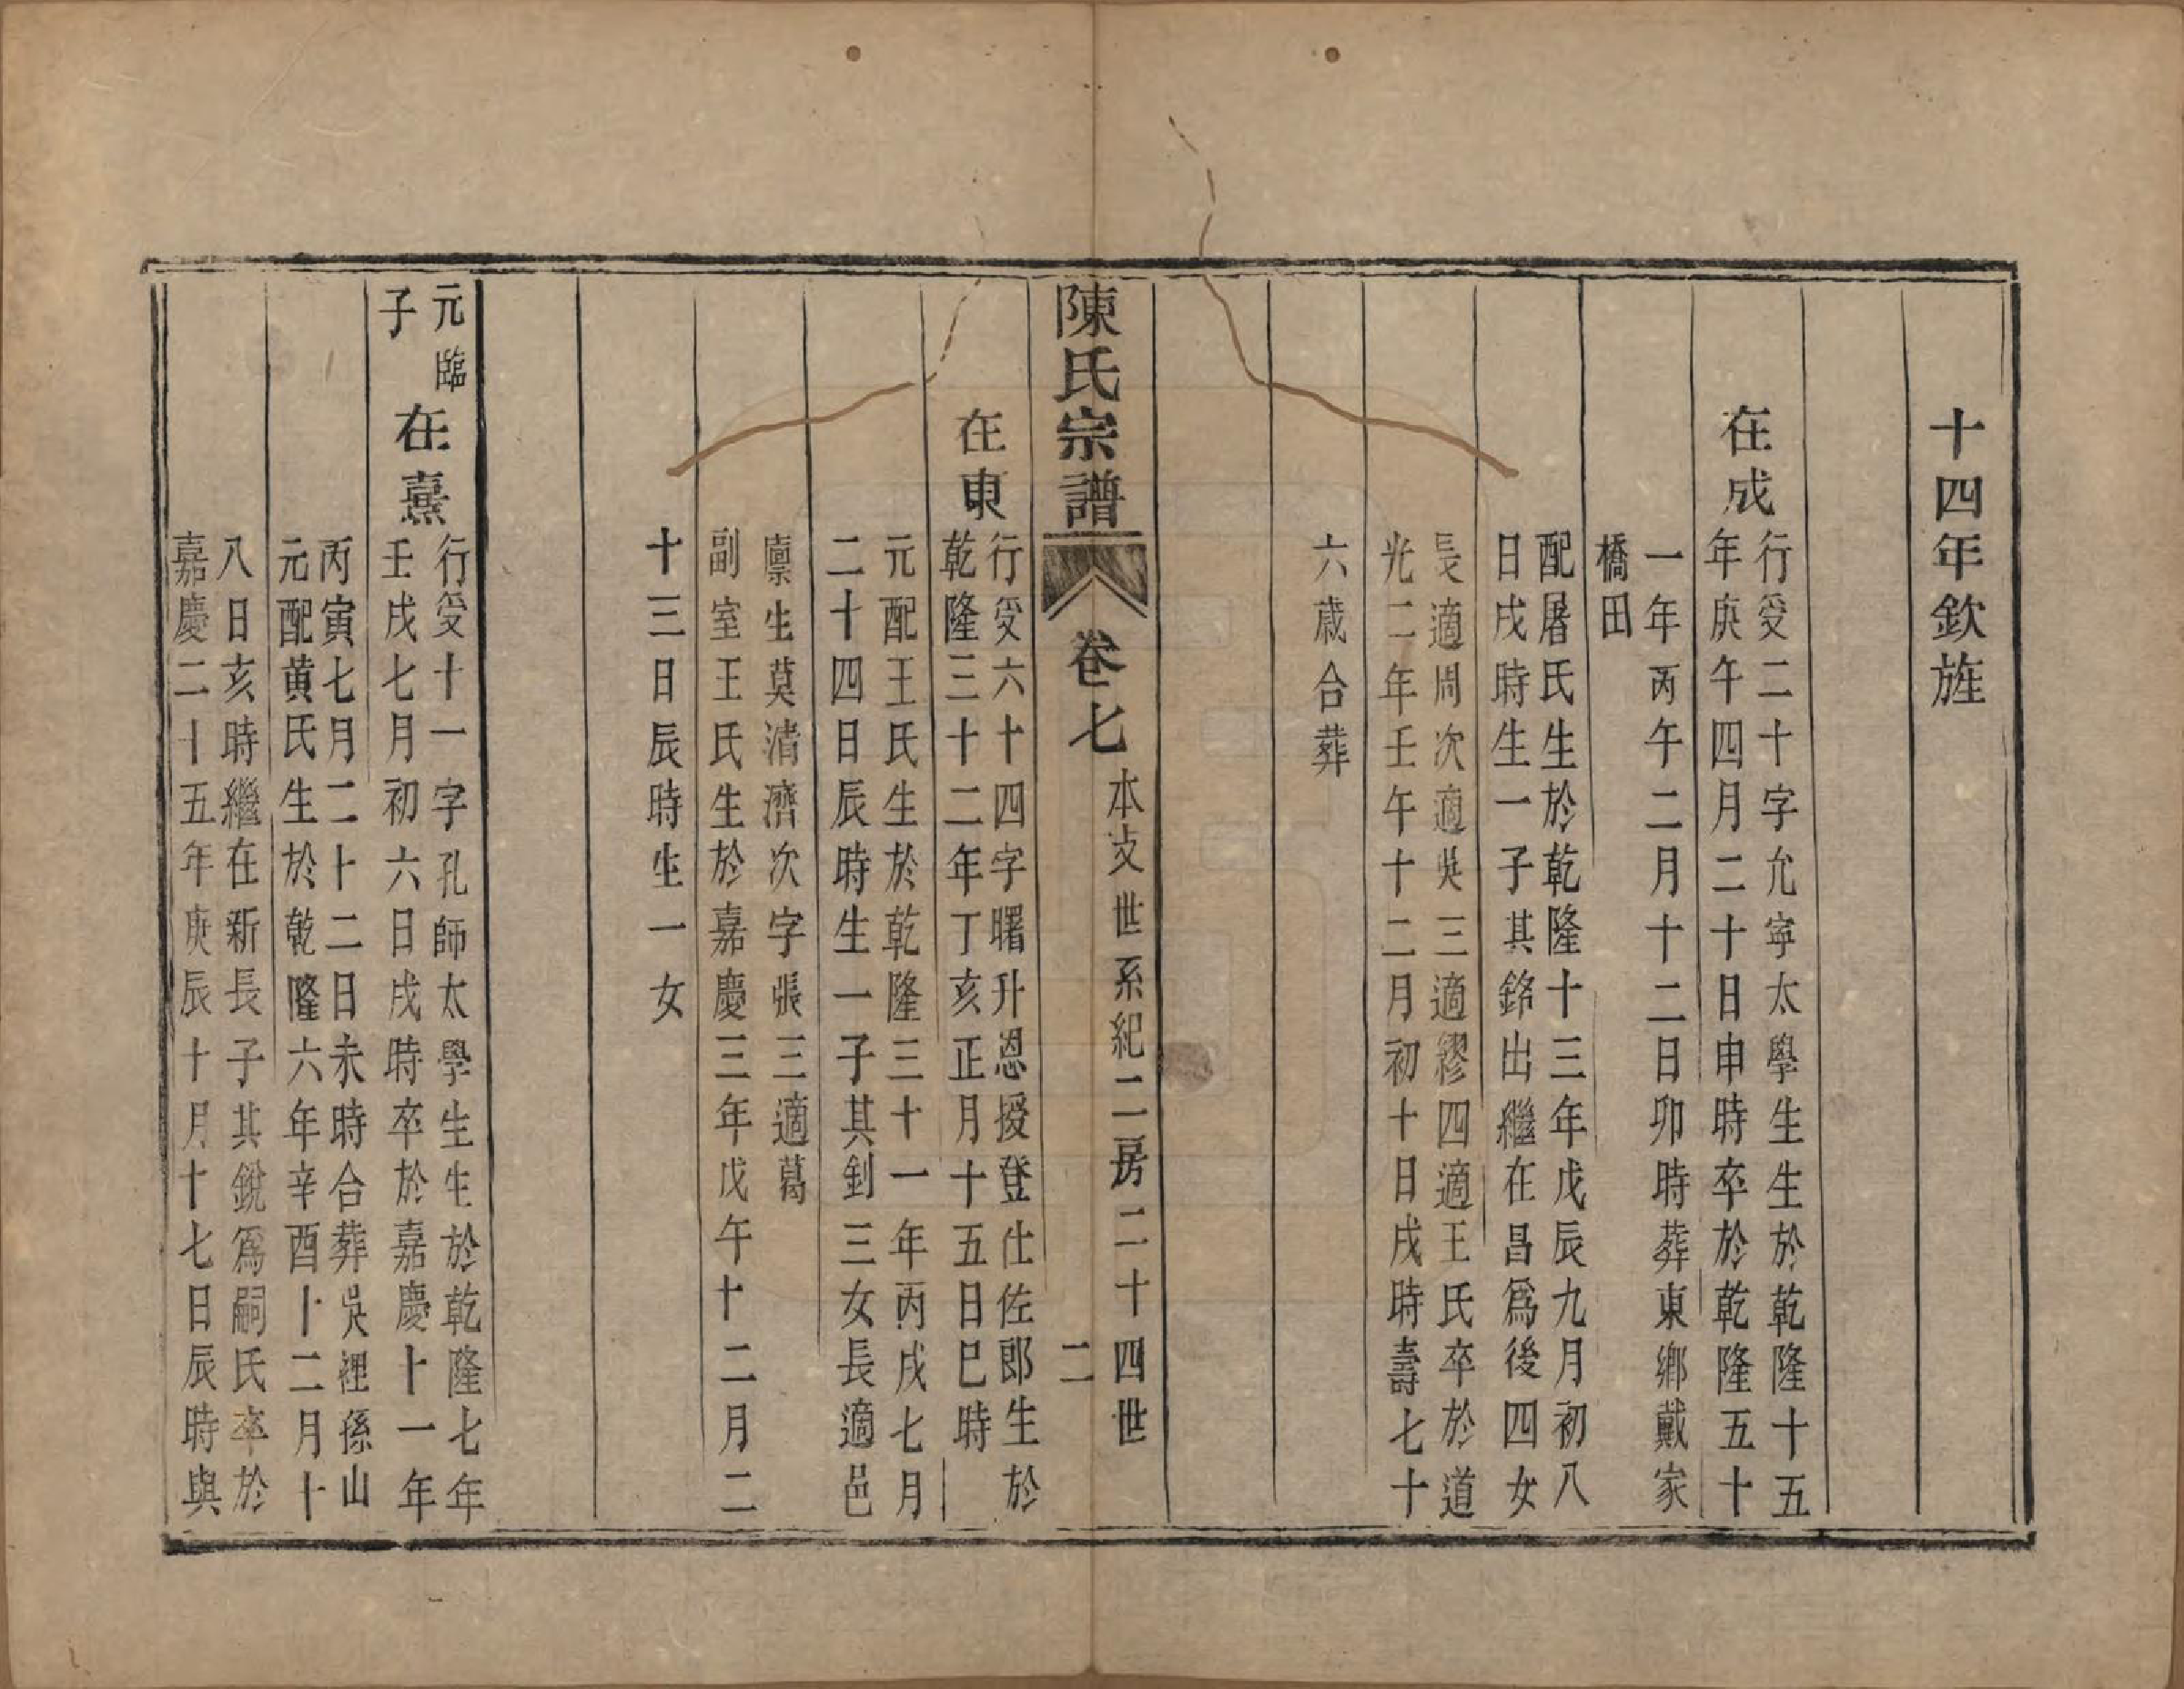 十四年欽旌
在成
行受二十字允寧太學生生於乾隆十五
年庚午四月二十日申時卒於乾隆五十
一年丙午二月十二日卯時葬東鄉戴家
橋田
配屠氏生於乾隆十三年戊辰九月初八
日戌時生一子其銘出繼在昌爲後四女
長適周次適吳三適繆四適王氏卒於道
光二年壬午十二月初十日戌時壽七十
六歲合葬
陳氏宗譜 卷七 本支世系紀二房二十四世 二
在東
行受六十四字曙升恩授登仕佐郎生於
乾隆三十二年丁亥正月十五日巳時
元配王氏生於乾隆三十一年丙戌七月
二十四日辰時生一子其釗三女長適邑
廩生莫清濟次字張三適葛
副室王氏生於嘉慶三年戊午十二月二
十三日辰時生一女
元臨
子
在熹
行受十一字孔師太學生生於乾隆七年
壬戌七月初六日戌時卒於嘉慶十一年
丙寅七月二十二日未時合葬吳裡孫山
元配黄氏生於乾隆六年辛酉十二月十
八日亥時繼在新長子其銳爲嗣氏卒於
嘉慶二十五年庚辰十月十七日辰時與